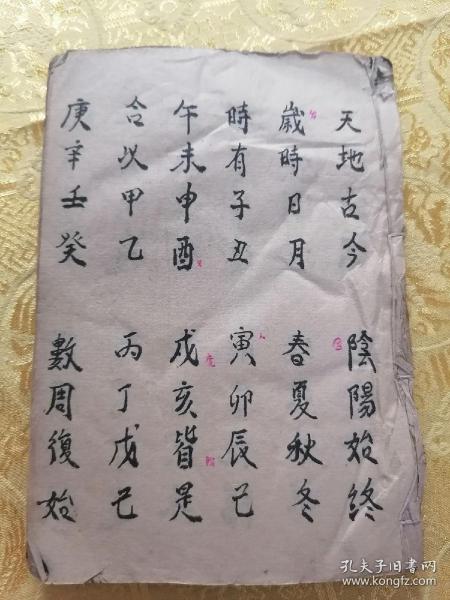 天地古今 陰陽始終
歲時日月 春夏秋冬
時有子丑 寅卯辰巳
午未申酉 戌亥皆是
合以甲乙 丙丁戊己
庚辛壬癸 數周復始
孔夫子旧书网
www.kongfz.com